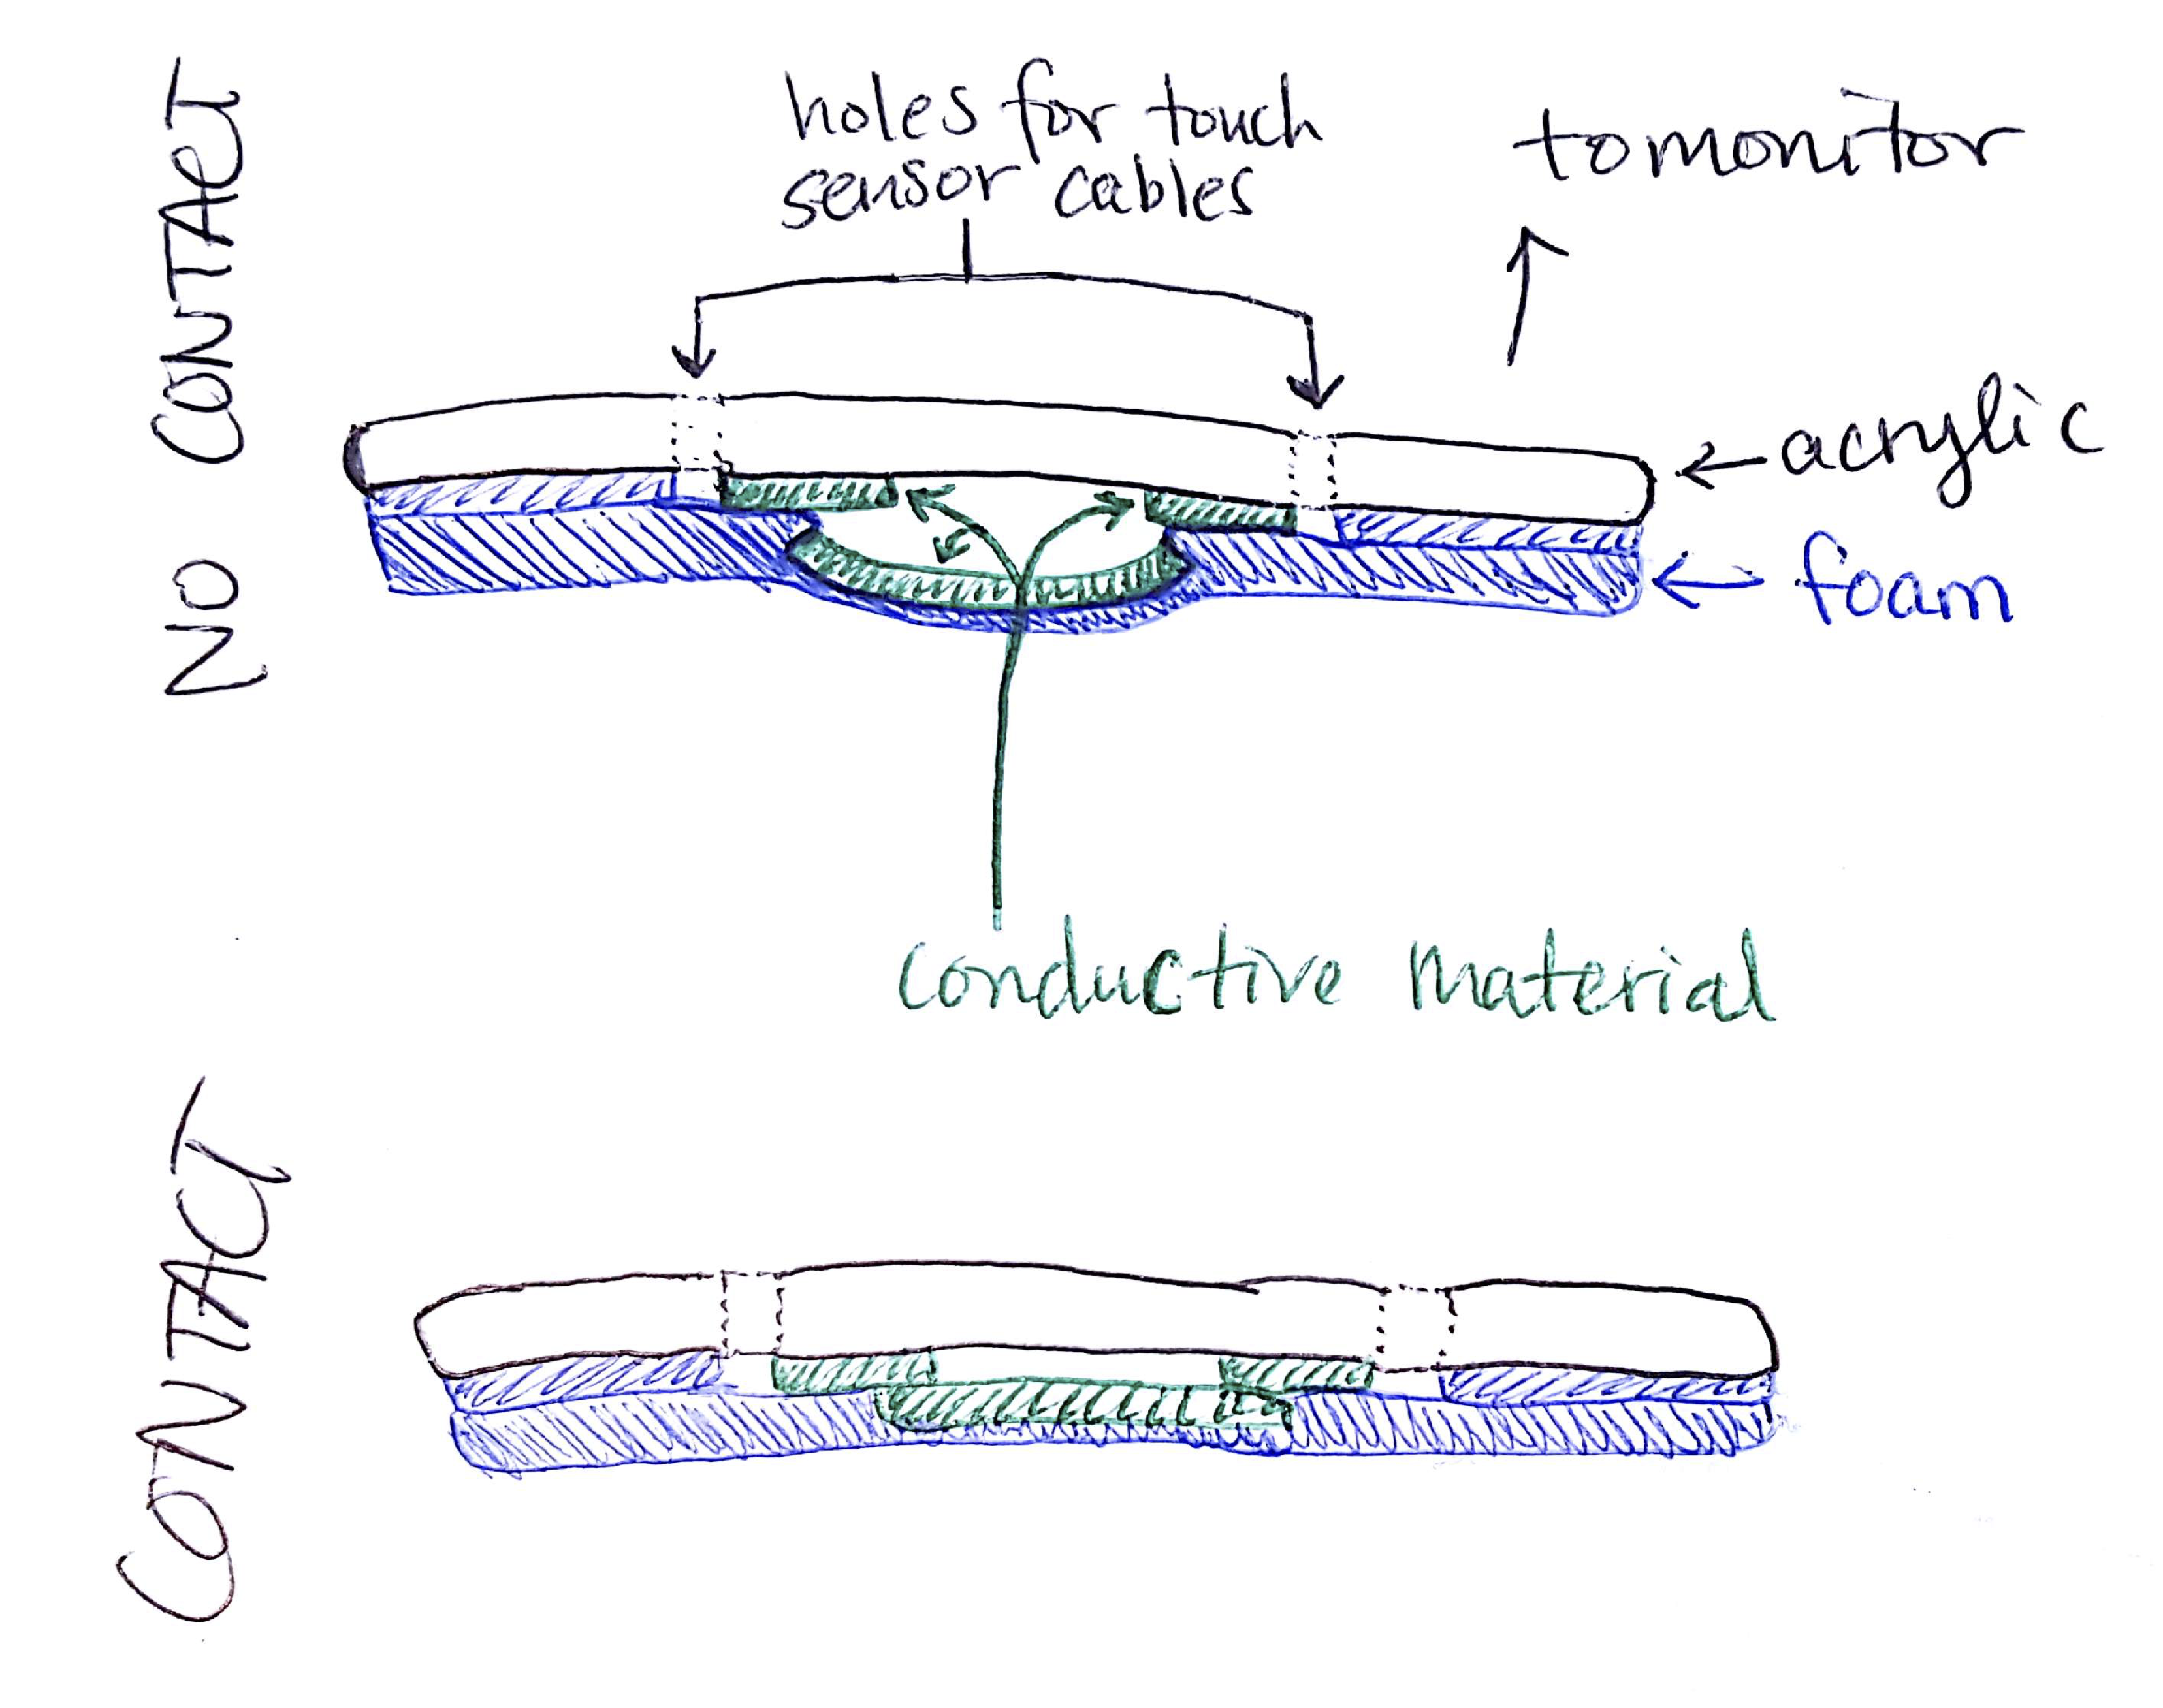 NO CONTACT
holes for touch
sensor cables
to monitor
acrylic
foam
conductive material
CONTACT